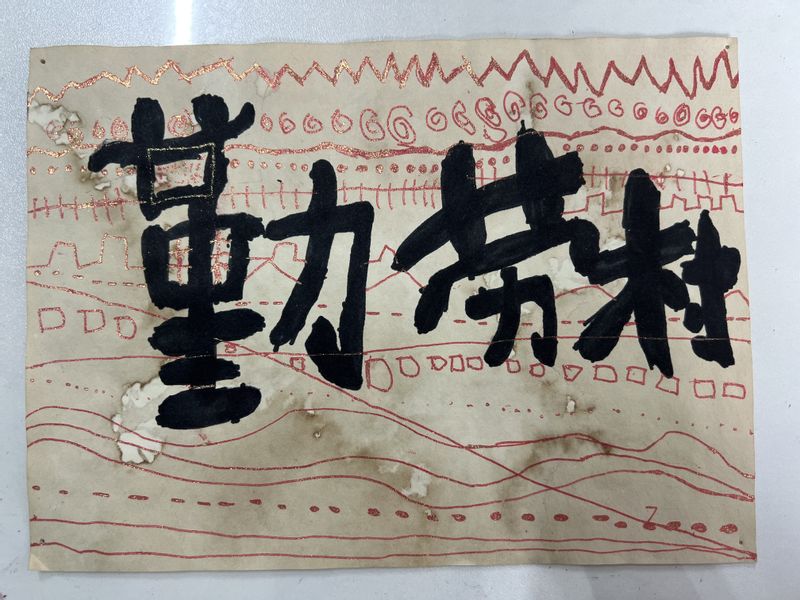 勤劳村